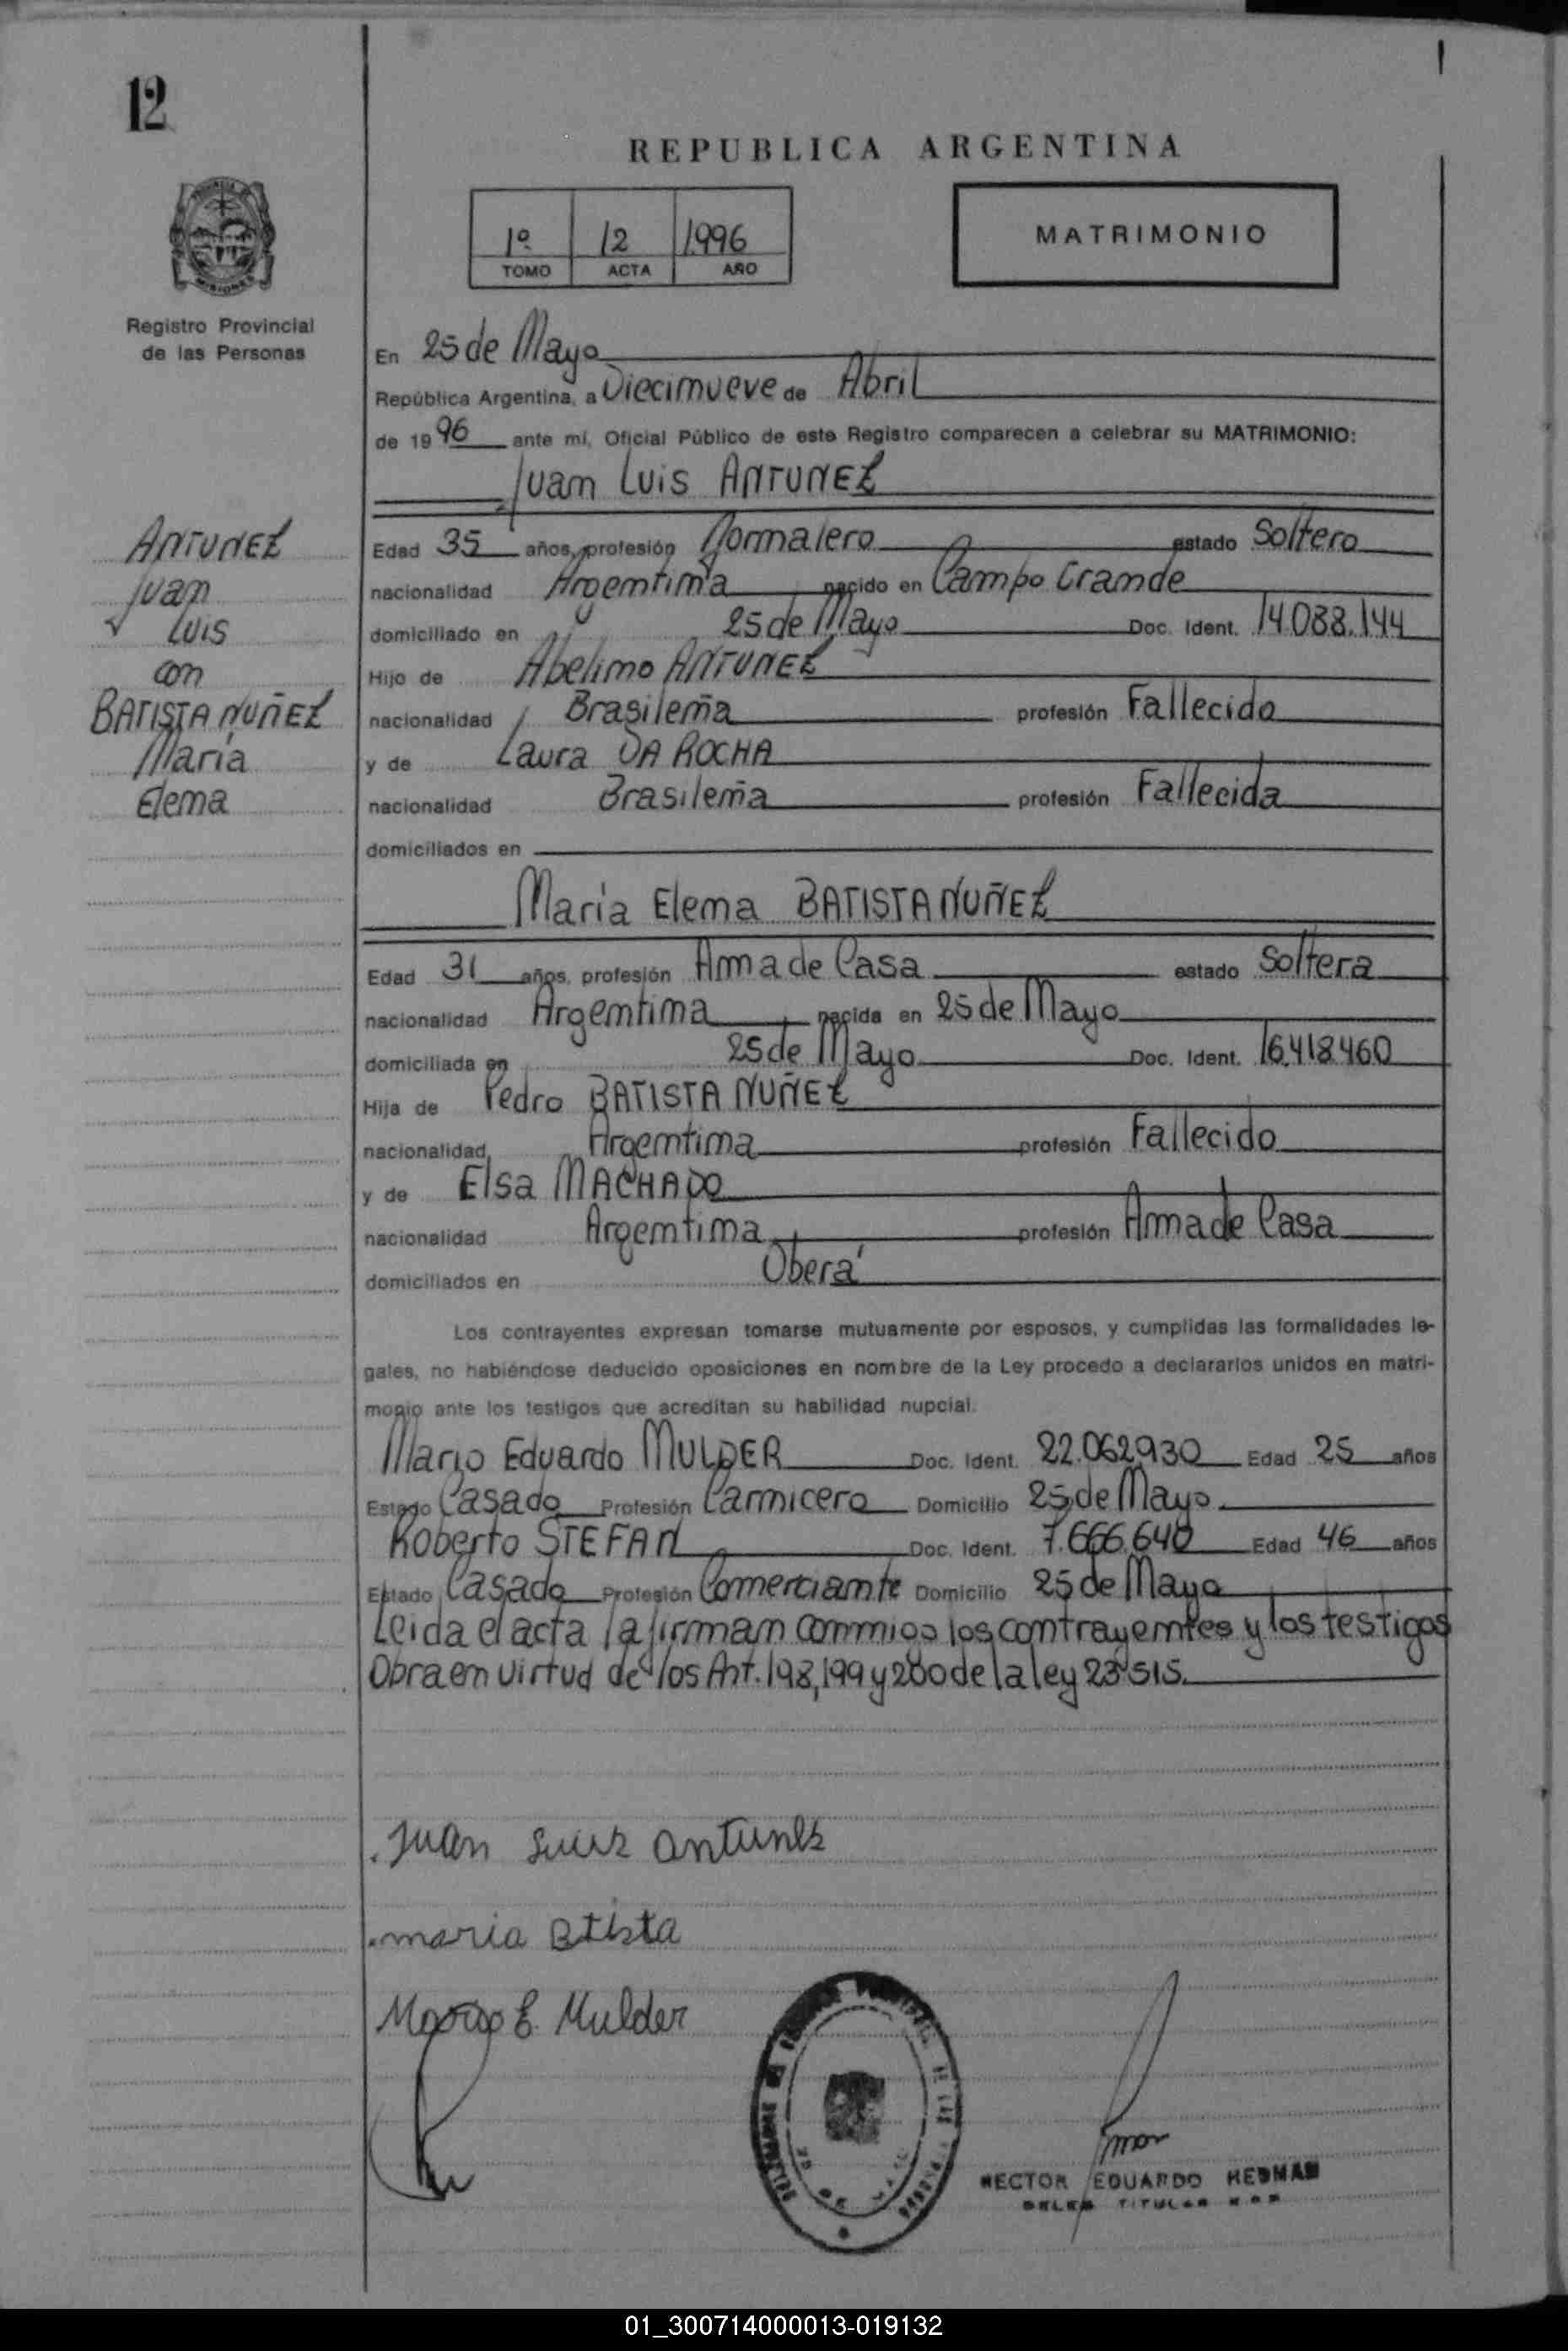 12
REPUBLICA ARGENTINA
1º 12 1996
TOMO ACTA AÑO
MATRIMONIO
Registro Provincial
de las Personas
ANTUNEZ
Juan
Luis
con
BATISTA NUÑEZ
María
Elema
En 25 de Mayo
República Argentina, a Diecimueve de Abril
de 19 96 ante mí, Oficial Público de este Registro comparecen a celebrar su MATRIMONIO:
Juam Luis ANTUNEZ
Edad 35 años, profesión Jormalero estado Soltero
nacionalidad Argemtima nacido en Campo Gramde
domiciliado en 25 de Mayo Doc. Ident. 14.088.144
Hijo de Abelimo ANTUNEZ
nacionalidad Brasileña profesión Fallecido
y de Laura DA ROCHA
nacionalidad Brasileña profesión Fallecida
domiciliados en
María Elema BATISTA NUÑEZ
Edad 31 años, profesión Ama de Casa estado Soltera
nacionalidad Argemtima nacida en 25 de Mayo
domiciliada en 25 de Mayo Doc. Ident. 16.418.460
Hija de Pedro BATISTA NUÑEZ
nacionalidad Argemtima profesión Fallecido
y de Elsa MACHADO
nacionalidad Argemtima profesión Ama de Casa
domiciliados en Oberá
Los contrayentes expresan tomarse mutuamente por esposos, y cumplidas las formalidades le-
gales, no habiéndose deducido oposiciones en nombre de la Ley procedo a declararlos unidos en matri-
monio ante los testigos que acreditan su habilidad nupcial.
Mario Eduardo MULDER Doc. Ident. 22.062.930 Edad 25 años
Estado Casado Profesión Carmicero Domicilio 25 de Mayo
Roberto STEFAN Doc. Ident. 7.666.640 Edad 46 años
Estado Casado Profesión Comerciamte Domicilio 25 de Mayo
Leida el acta la firmam commigo los contrayemtes y los testigos
Obra en virtud de los Art. 198, 199 y 200 de la ley 23515.
Juan Luiz antunez
maria Btista
Mario E. Mulder
HECTOR EDUARDO HEDMAN
TITULAR
01_300714000013-019132